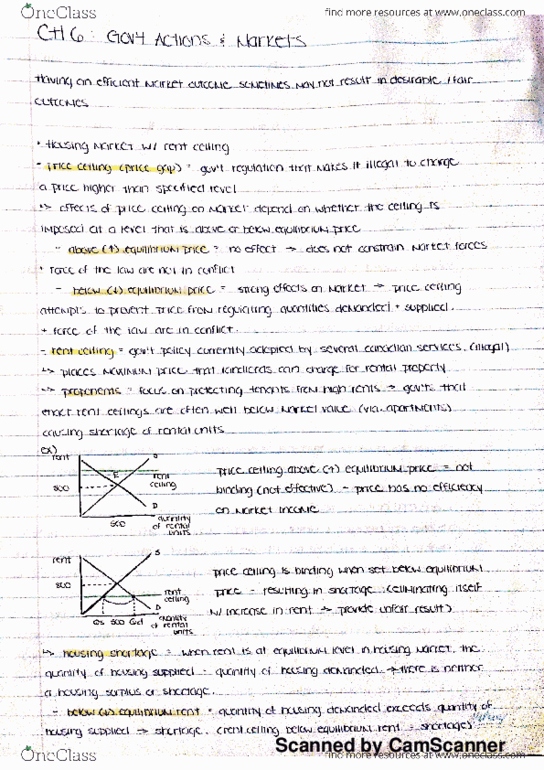 OneClass
find more resources at www.oneclass.com
CH 6 : GOV'T ACTIONS & MARKETS
Having an efficient market outcome sometimes may not result in desirable / fair
outcomes
• Housing market w/ rent ceiling
- Price ceiling (price gap) = gov't regulation that makes it illegal to charge
a price higher than specified level
↳ effects of price ceiling on market depend on whether the ceiling is
imposed at a level that is above or below equilibrium price
- above (↑) equilibrium price = no effect → does not constrain market forces
+ force of the law are not in conflict
- below (↓) equilibrium price = strong effects on market → price ceiling
attempts to prevent price from regulating quantities demanded + supplied.
+ force of the law are in conflict.
- rent ceiling = gov't policy currently adopted by several canadian services. (illegal)
↳ places maximum price that landlords can charge for rental property
↳ proponents = focus on protecting tenants from high rents → gov'ts that
enact rent ceilings are often well below market value (via. apartments)
causing shortage of rental units
ex)
rent
S
E
rent
ceiling
500
D
500
quantity
of rental
units
price ceiling above (↑) equilibrium price = not
binding (not effective) - price has no efficiency
on market income
rent
S
500
rent
ceiling
D
Qs 500 Qd
quantity
of rental
units
price ceiling is binding when set below equilibrium
price - resulting in shortage (eliminating itself
w/ increase in rent → provide unfair result)
↳ housing shortage = when rent is at equilibrium level in housing market, the
quantity of housing supplied = quantity of housing demanded. → there is neither
a housing surplus or shortage.
- below (↓) equilibrium rent = quantity of housing demanded exceeds quantity of
housing supplied → shortage. (rent ceiling below equilibrium rent = shortage)
Scanned by CamScanner
OneClass
find more resources at www.oneclass.com